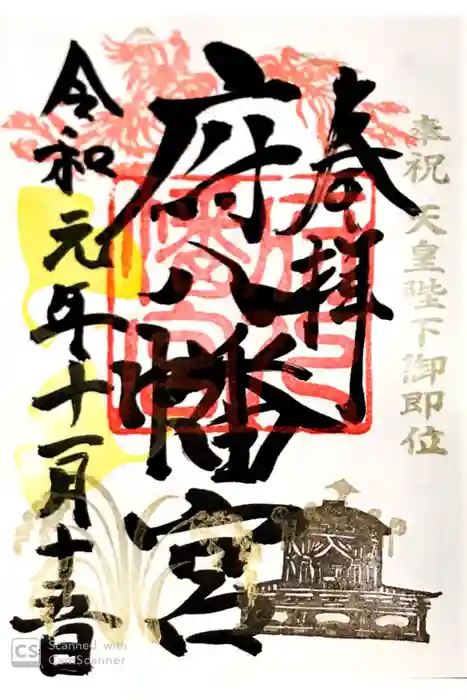 奉祝 天皇陛下御即位
奉拝
府八幡宮
令和元年十一月十五日
CS Scanned with
CamScanner